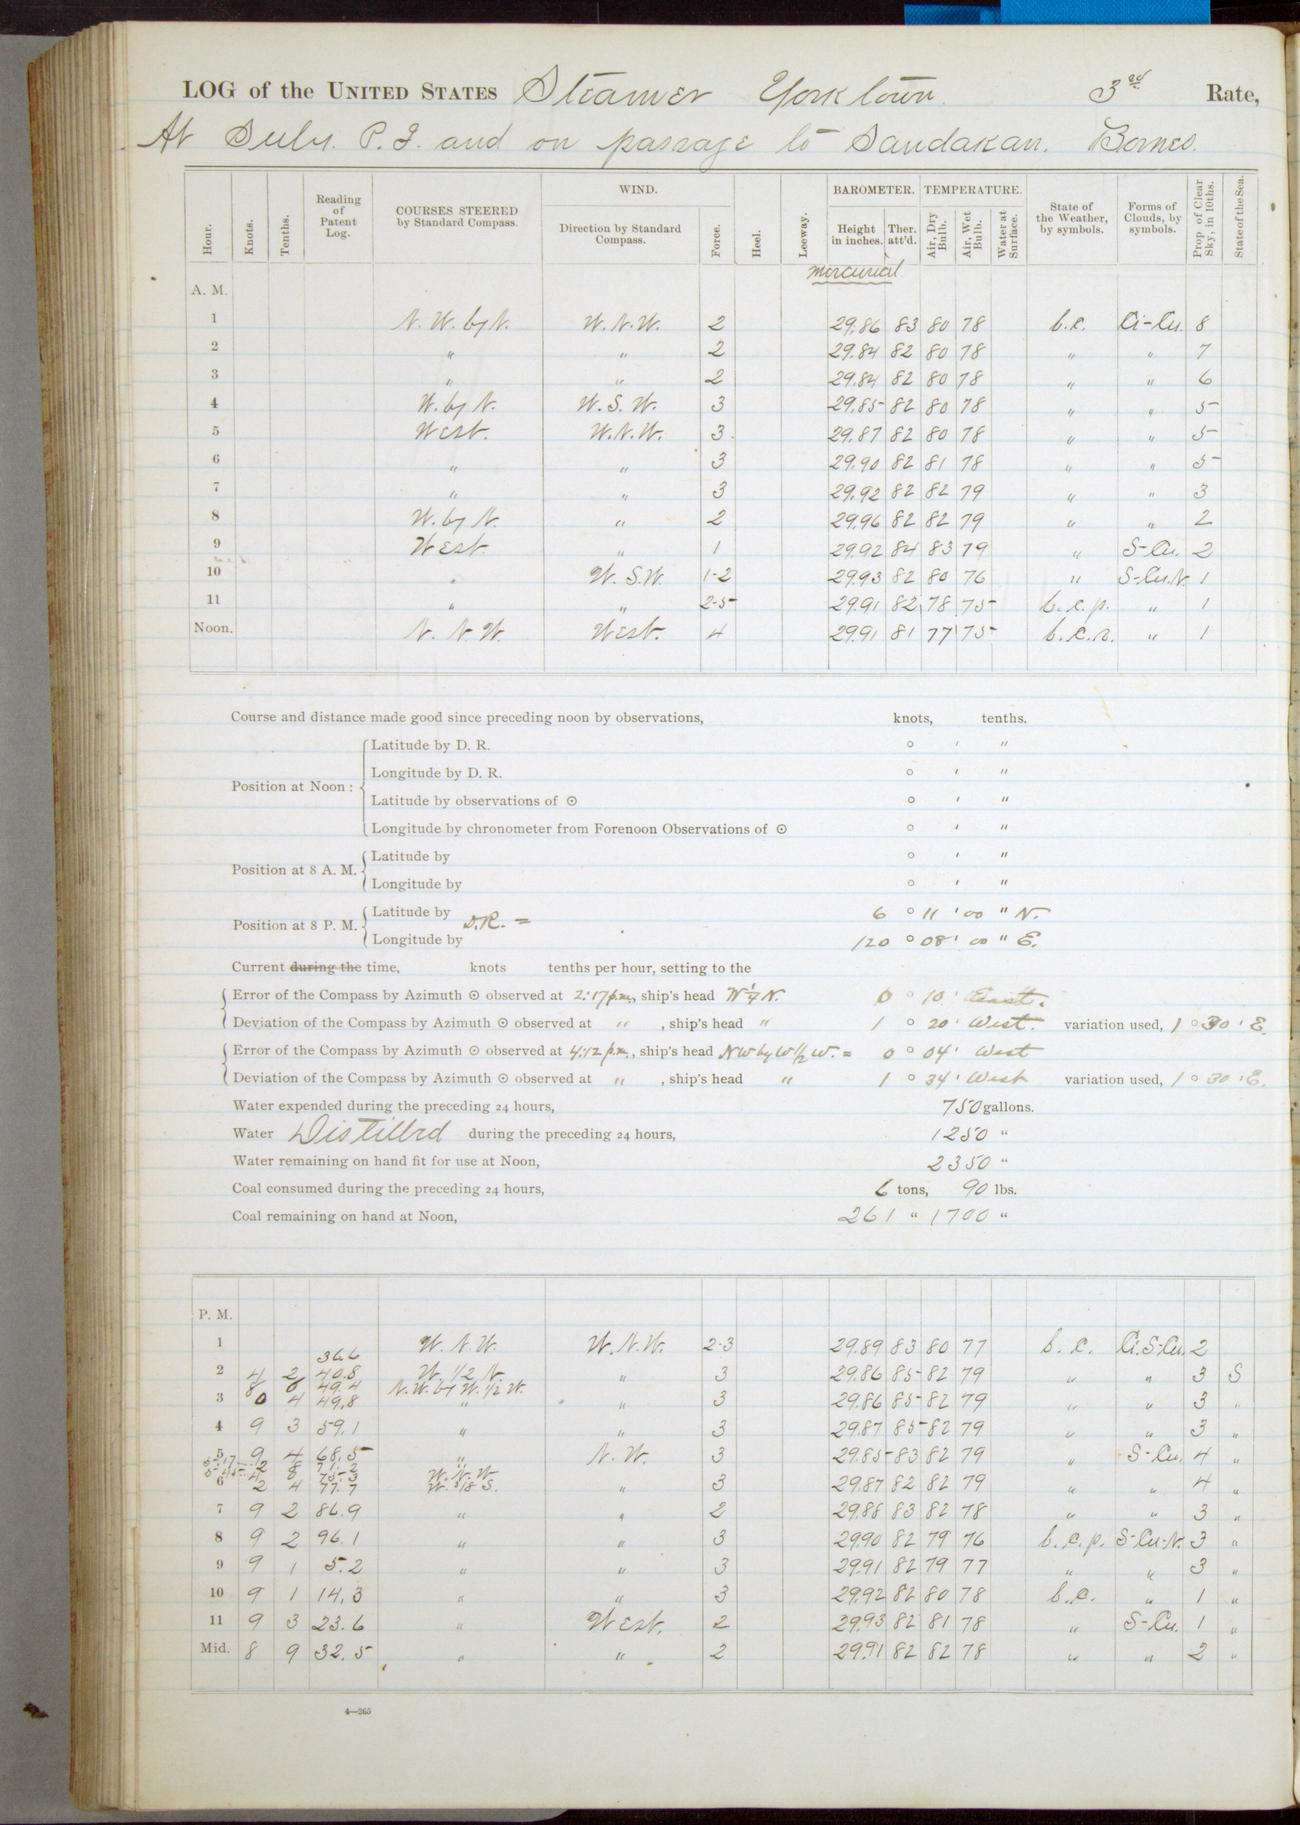 LOG of the UNITED STATES Steamer Yorktown 3rd Rate,
At Sulu. P. I. and on passage to Sandakan. Borneo.
Hour. Knots. Tenths. Reading of Patent Log. COURSES STEERED by Standard Compass. WIND. Direction by Standard Compass. Force. Heel. Leeway. BAROMETER. Height in inches. Ther. att'd. TEMPERATURE. Air, Dry Bulb. Air, Wet Bulb. Water at Surface. State of the Weather, by symbols. Forms of Clouds, by symbols. Prop of Clear Sky, in 10ths. State of the Sea.
mercurial
A. M.
1 N. W. by N. W. N. W. 2 29.86 83 80 78 b. c. Ci-Cu. 8
2 " " 2 29.84 82 80 78 " " 7
3 " " 2 29.84 82 80 78 " " 6
4 W. by N. W. S. W. 3 29.85 82 80 78 " " 5
5 West. W. N. W. 3 29.87 82 80 78 " " 5
6 " " 3 29.90 82 81 78 " " 5
7 " " 3 29.92 82 82 79 " " 3
8 W. by N. " 2 29.96 82 82 79 " " 2
9 West " 1 29.92 84 83 79 " S-Cu. 2
10 " W. S.W. 1-2 29.93 82 80 76 " S-Cu.N. 1
11 " " 2-5 29.91 82 78 75 b. c. p. " 1
Noon. N. N. W. West. 4 29.91 81 77 75 b. c. r. " 1
Course and distance made good since preceding noon by observations, knots, tenths.
Position at Noon :
Latitude by D. R. ° ' "
Longitude by D. R. ° ' "
Latitude by observations of ☉ ° ' "
Longitude by chronometer from Forenoon Observations of ☉ ° ' "
Position at 8 A. M.
Latitude by ° ' "
Longitude by ° ' "
Position at 8 P. M. D.R. =
Latitude by 6 ° 11 ' 00 " N.
Longitude by 120 ° 08 ' 00 " E.
Current during the time, knots tenths per hour, setting to the
Error of the Compass by Azimuth ☉ observed at 2:17 p.m., ship's head 0 ° 10 ' East.
Deviation of the Compass by Azimuth ☉ observed at " , ship's head " 1 ° 20 ' West. variation used, 1 ° 30 ' E.
Error of the Compass by Azimuth ☉ observed at 4:12 p.m., ship's head NW by W 1/2 W. = 0 ° 04 ' West
Deviation of the Compass by Azimuth ☉ observed at " , ship's head " 1 ° 34 ' West variation used, 1 ° 30 ' E.
Water expended during the preceding 24 hours, 750 gallons.
Water Distilled during the preceding 24 hours, 1250 "
Water remaining on hand fit for use at Noon, 2350 "
Coal consumed during the preceding 24 hours, 6 tons, 90 lbs.
Coal remaining on hand at Noon, 261 " 1700 "
P. M.
1 36.6 W. N. W. W. N. W. 2-3 29.89 83 80 77 b. c. Ci.S-Cu. 2
2 4 2 40.8 W. 1/2 N. " 3 29.86 85 82 79 " " 3 S
8 6 49.4 N. W. by W. 1/2 W.
3 0 4 49.8 " " 3 29.86 85 82 79 " " 3 "
4 9 3 59.1 " " 3 29.87 85 82 79 " " 3 "
5 9 4 68.5 " N. W. 3 29.85 83 82 79 " S-Cu. 4 "
5-17 2 8 71.2
5-45 4 75.3 W. N. W.
6 2 4 77.7 W. 5/8 S. " 3 29.87 82 82 79 " " 4 "
7 9 2 86.9 " " 2 29.88 83 82 78 " " 3 "
8 9 2 96.1 " " 3 29.90 82 79 76 b. c. p. S-Cu-N. 3 "
9 9 1 5.2 " " 3 29.91 82 79 77 " " 3 "
10 9 1 14.3 " " 3 29.92 82 80 78 b. c. " 1 "
11 9 3 23.6 " West. 2 29.93 82 81 78 " S-Cu. 1 "
Mid. 8 9 32.5 " " 2 29.91 82 82 78 " " 2 "
4—265